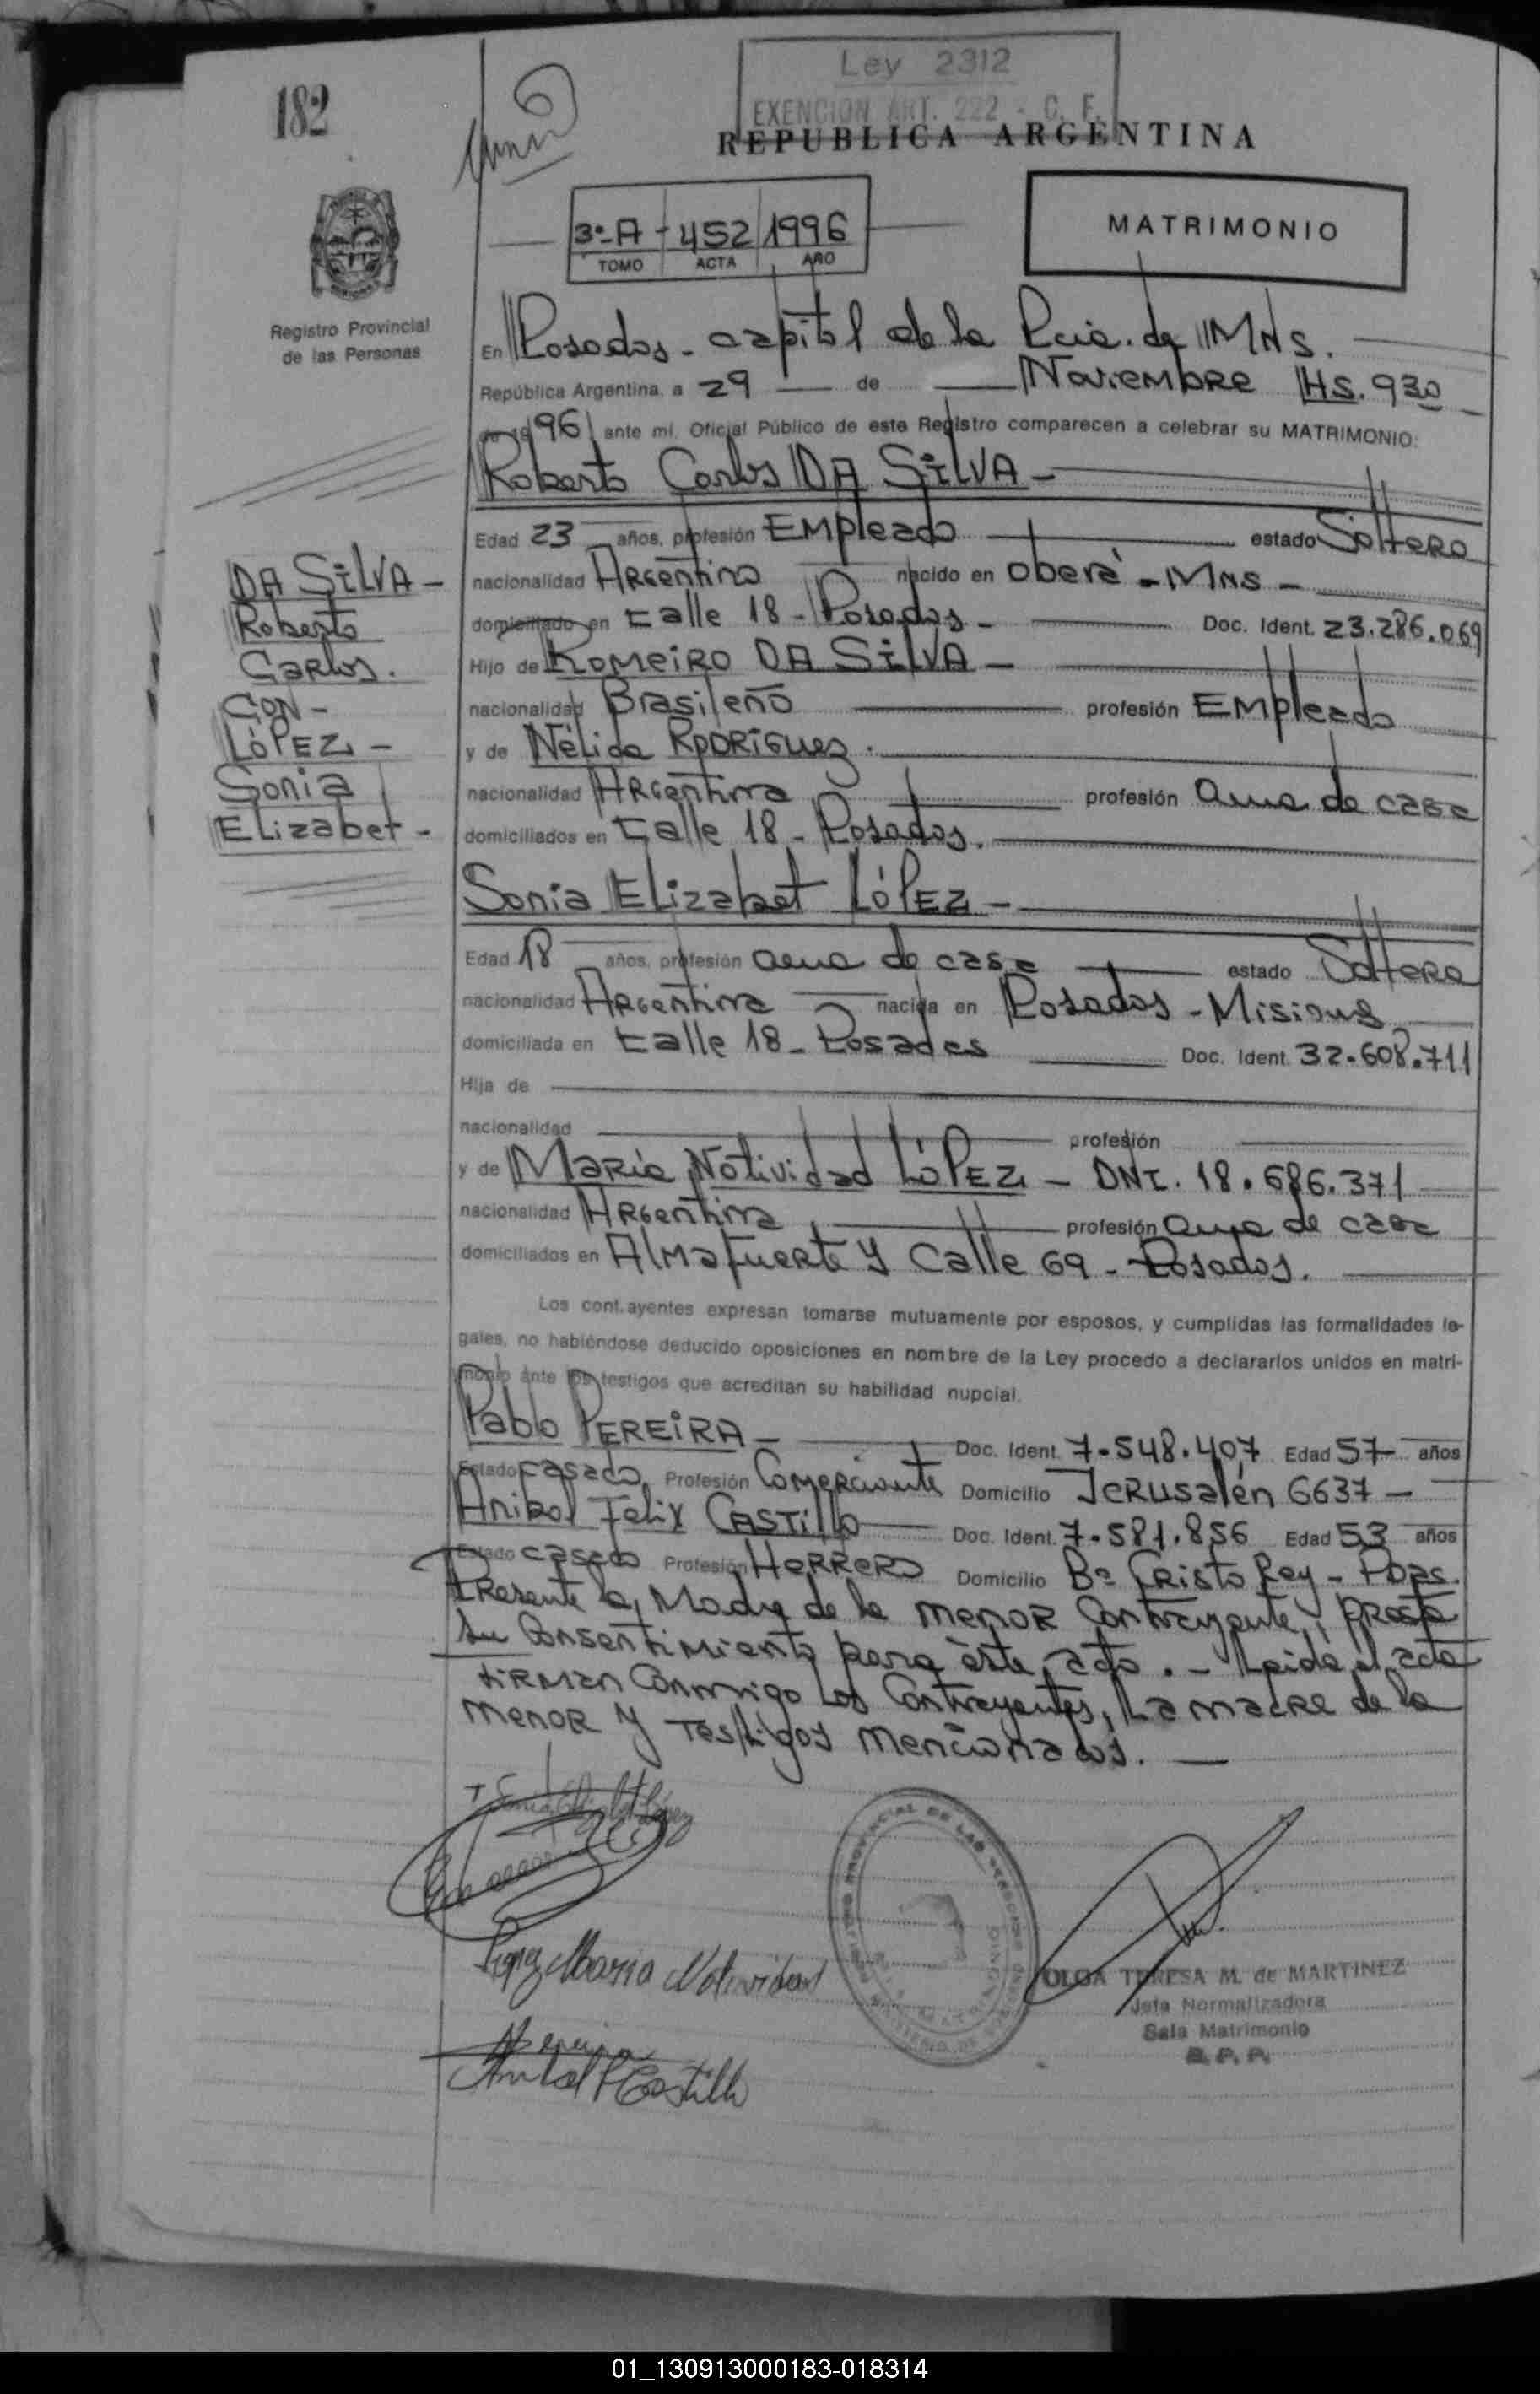 182
Ley 2312
EXENCION ART. 222 - C. F.
REPUBLICA ARGENTINA
3º-A - 452 1996
TOMO ACTA AÑO
MATRIMONIO
Registro Provincial
de las Personas
En Posadas - capital de la Pcia. de MNS.
República Argentina, a 29 de Noviembre Hs. 930
de 1996 ante mí, Oficial Público de este Registro comparecen a celebrar su MATRIMONIO:
Roberto Carlos DA SILVA -
Edad 23 años, profesión Empleado estado Soltero
DA SILVA -
Roberto
Carlos.
CON -
LÓPEZ -
Sonia
Elizabet -
nacionalidad Argentino nacido en Oberá - MNS -
domiciliado en Calle 18 - Posadas - Doc. Ident. 23.286.069
Hijo de ROMEIRO DA SILVA -
nacionalidad Brasileño profesión Empleado
y de Nélida RODRÍGUEZ.
nacionalidad Argentina profesión ama de casa
domiciliados en Calle 18 - Posadas.
Sonia Elizabet LÓPEZ -
Edad 18 años, profesión ama de casa estado Soltera
nacionalidad Argentina nacida en Posadas - Misiones
domiciliada en Calle 18 - Posadas Doc. Ident. 32.608.711
Hija de
nacionalidad profesión
y de María Natividad LÓPEZ - DNI. 18.686.371
nacionalidad Argentina profesión ama de casa
domiciliados en Almafuerte y Calle 69 - Posadas.
Los cont.ayentes expresan tomarse mutuamente por esposos, y cumplidas las formalidades le-
gales, no habiéndose deducido oposiciones en nombre de la Ley procedo a declararlos unidos en matri-
monio ante los testigos que acreditan su habilidad nupcial.
Pablo PEREIRA - Doc. Ident. 7.548.407 Edad 57 años
Estado casado Profesión Comerciante Domicilio Jerusalén 6637 -
Anibal Felix CASTILLO Doc. Ident. 7.581.856 Edad 53 años
Estado casado Profesión Herrero Domicilio Bº Cristo Rey - Pdas.
Presente la Madre de la menor contrayente, presta
su consentimiento para éste acto. - Leida el acta
firman conmigo los contrayentes, la madre de la
menor y testigos mencionados.
Sonia Elizabet López
López Maria Natividad
Pereira
Anibal F Castillo
OLGA TERESA M. de MARTINEZ
Jefa Normalizadora
Sala Matrimonio
R. P. P.
01_130913000183-018314